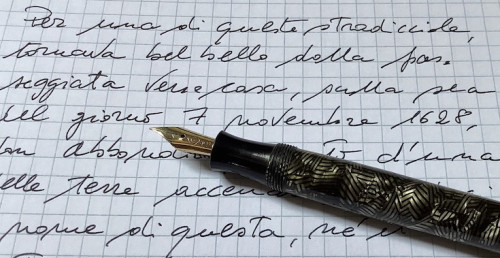 Per una di queste stradicciole,
tornava bel bello dalla pas-
seggiata verso casa, sulla sera
del giorno 7 novembre 1628,
don abbondio d'una
elle terre accenn
nome di questa, né